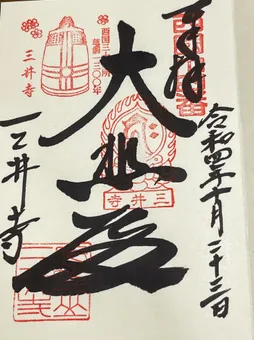 奉拝
西国十四番
西国三十三所
草創一三〇〇年
三井寺
大悲
三井寺
三井寺
令和四年 月二十三日